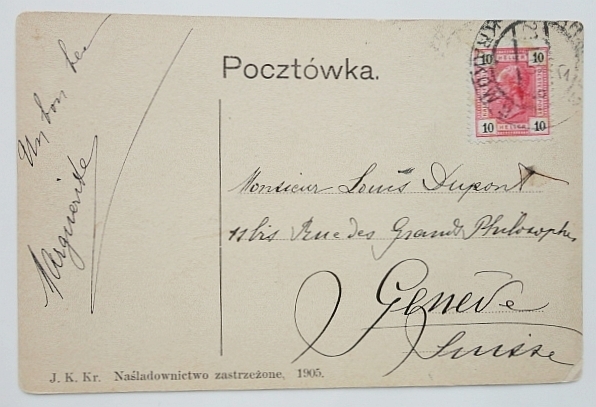 Pocztówka.
10 10
HELLER
10 10
Un bon
Marguerite
Monsieur Louis Dupont
11 bis Rue des Grands Philosophes
Genève
Suisse
J. K. Kr. Naśladownictwo zastrzeżone, 1905.